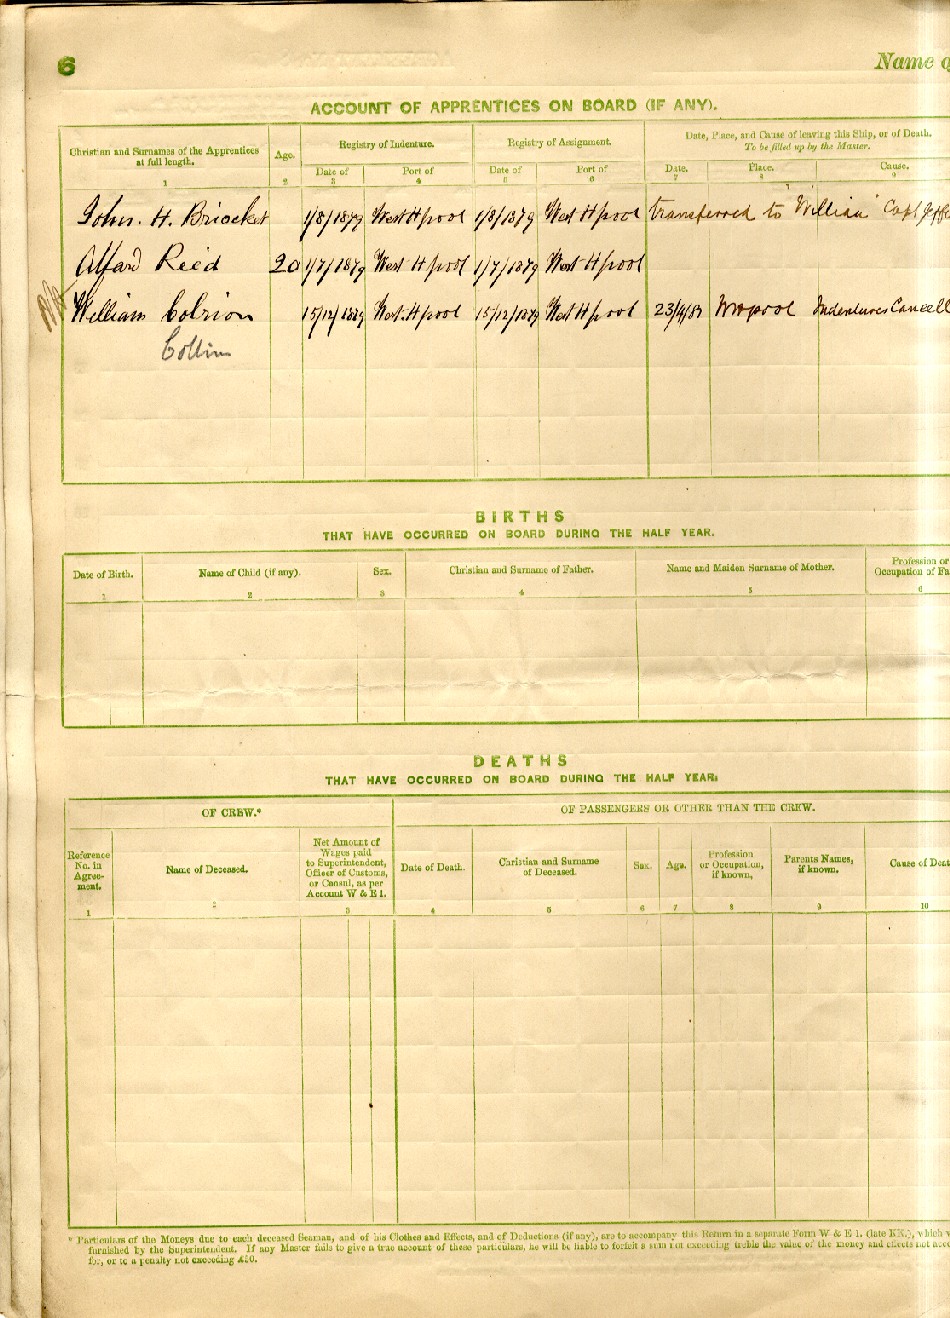 6
Name o
ACCOUNT OF APPRENTICES ON BOARD (IF ANY).
Christian and Surnames of the Apprentices at full length. Age. Registry of Indenture. Registry of Assignment. Date, Place, and Cause of leaving this Ship, or of Death.
To be filled up by the Master.
Date of Port of Date of Port of Date. Place. Cause.
1 2 3 4 5 6 7 8 9
John. H. 1/8/1879 West Hpool 1/8/1879 West Hpool transferred to "William" Capt
Alfard Reed 20 1/7/1879 West Hpool 1/7/1879 West Hpool
William 15/12/1879 West Hpool 15/12/1879 West Hpool Indentures Cancell
Collin
BIRTHS
THAT HAVE OCCURRED ON BOARD DURING THE HALF YEAR.
Date of Birth. Name of Child (if any). Sex. Christian and Surname of Father. Name and Maiden Surname of Mother. Profession or Occupation of Fa
1 2 3 4 5 6
DEATHS
THAT HAVE OCCURRED ON BOARD DURING THE HALF YEAR.
OF CREW.* OF PASSENGERS OR OTHER THAN THE CREW.
Reference No. in Agreement. Name of Deceased. Net Amount of Wages paid to Superintendent, Officer of Customs, or Consul, as per Account W & E 1. Date of Death. Christian and Surname of Deceased. Sex. Age. Profession or Occupation, if known, Parents Names, if known. Cause of Deat
1 2 3 4 5 6 7 8 9 10
* Particulars of the Moneys due to each deceased Seaman, and of his Clothes and Effects, and of Deductions (if any), are to accompany this Return in a separate Form W & E 1. (late KK.), which w
furnished by the Superintendent. If any Master fails to give a true account of these particulars, he will be liable to forfeit a sum not exceeding treble the value of the money and effects not acc
for, or to a penalty not exceeding £50.